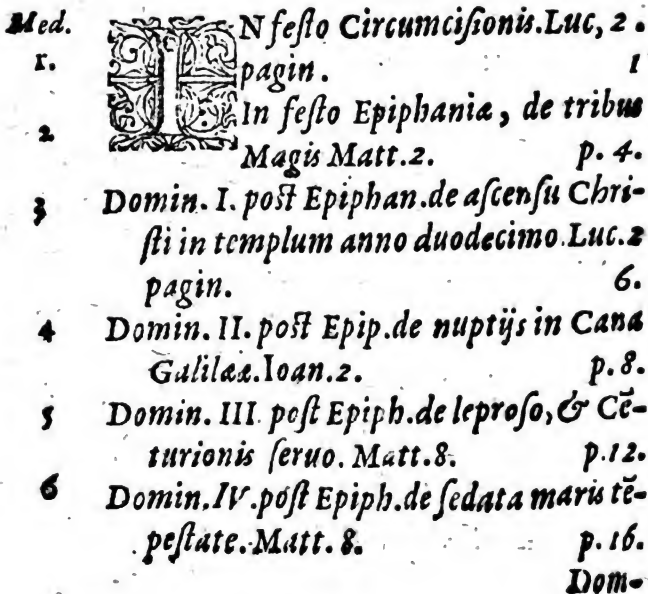 Med. IN festo Circumcisionis.Luc, 2.
1. pagin. 1
In festo Epiphaniæ, de tribus
2 Magis Matt.2. p. 4.
3 Domin. I. post Epiphan.de ascensu Chri-
sti in templum anno duodecimo.Luc.2
pagin. 6.
4 Domin. II. post Epip.de nuptijs in Cana
Galilææ.Ioan.2. p.8.
5 Domin. III post Epiph.de leproso, & Cē-
turionis seruo. Matt.8. p.12.
6 Domin.IV.post Epiph.de sedata maris tē-
pestate. Matt. 8. p.16.
Dom-